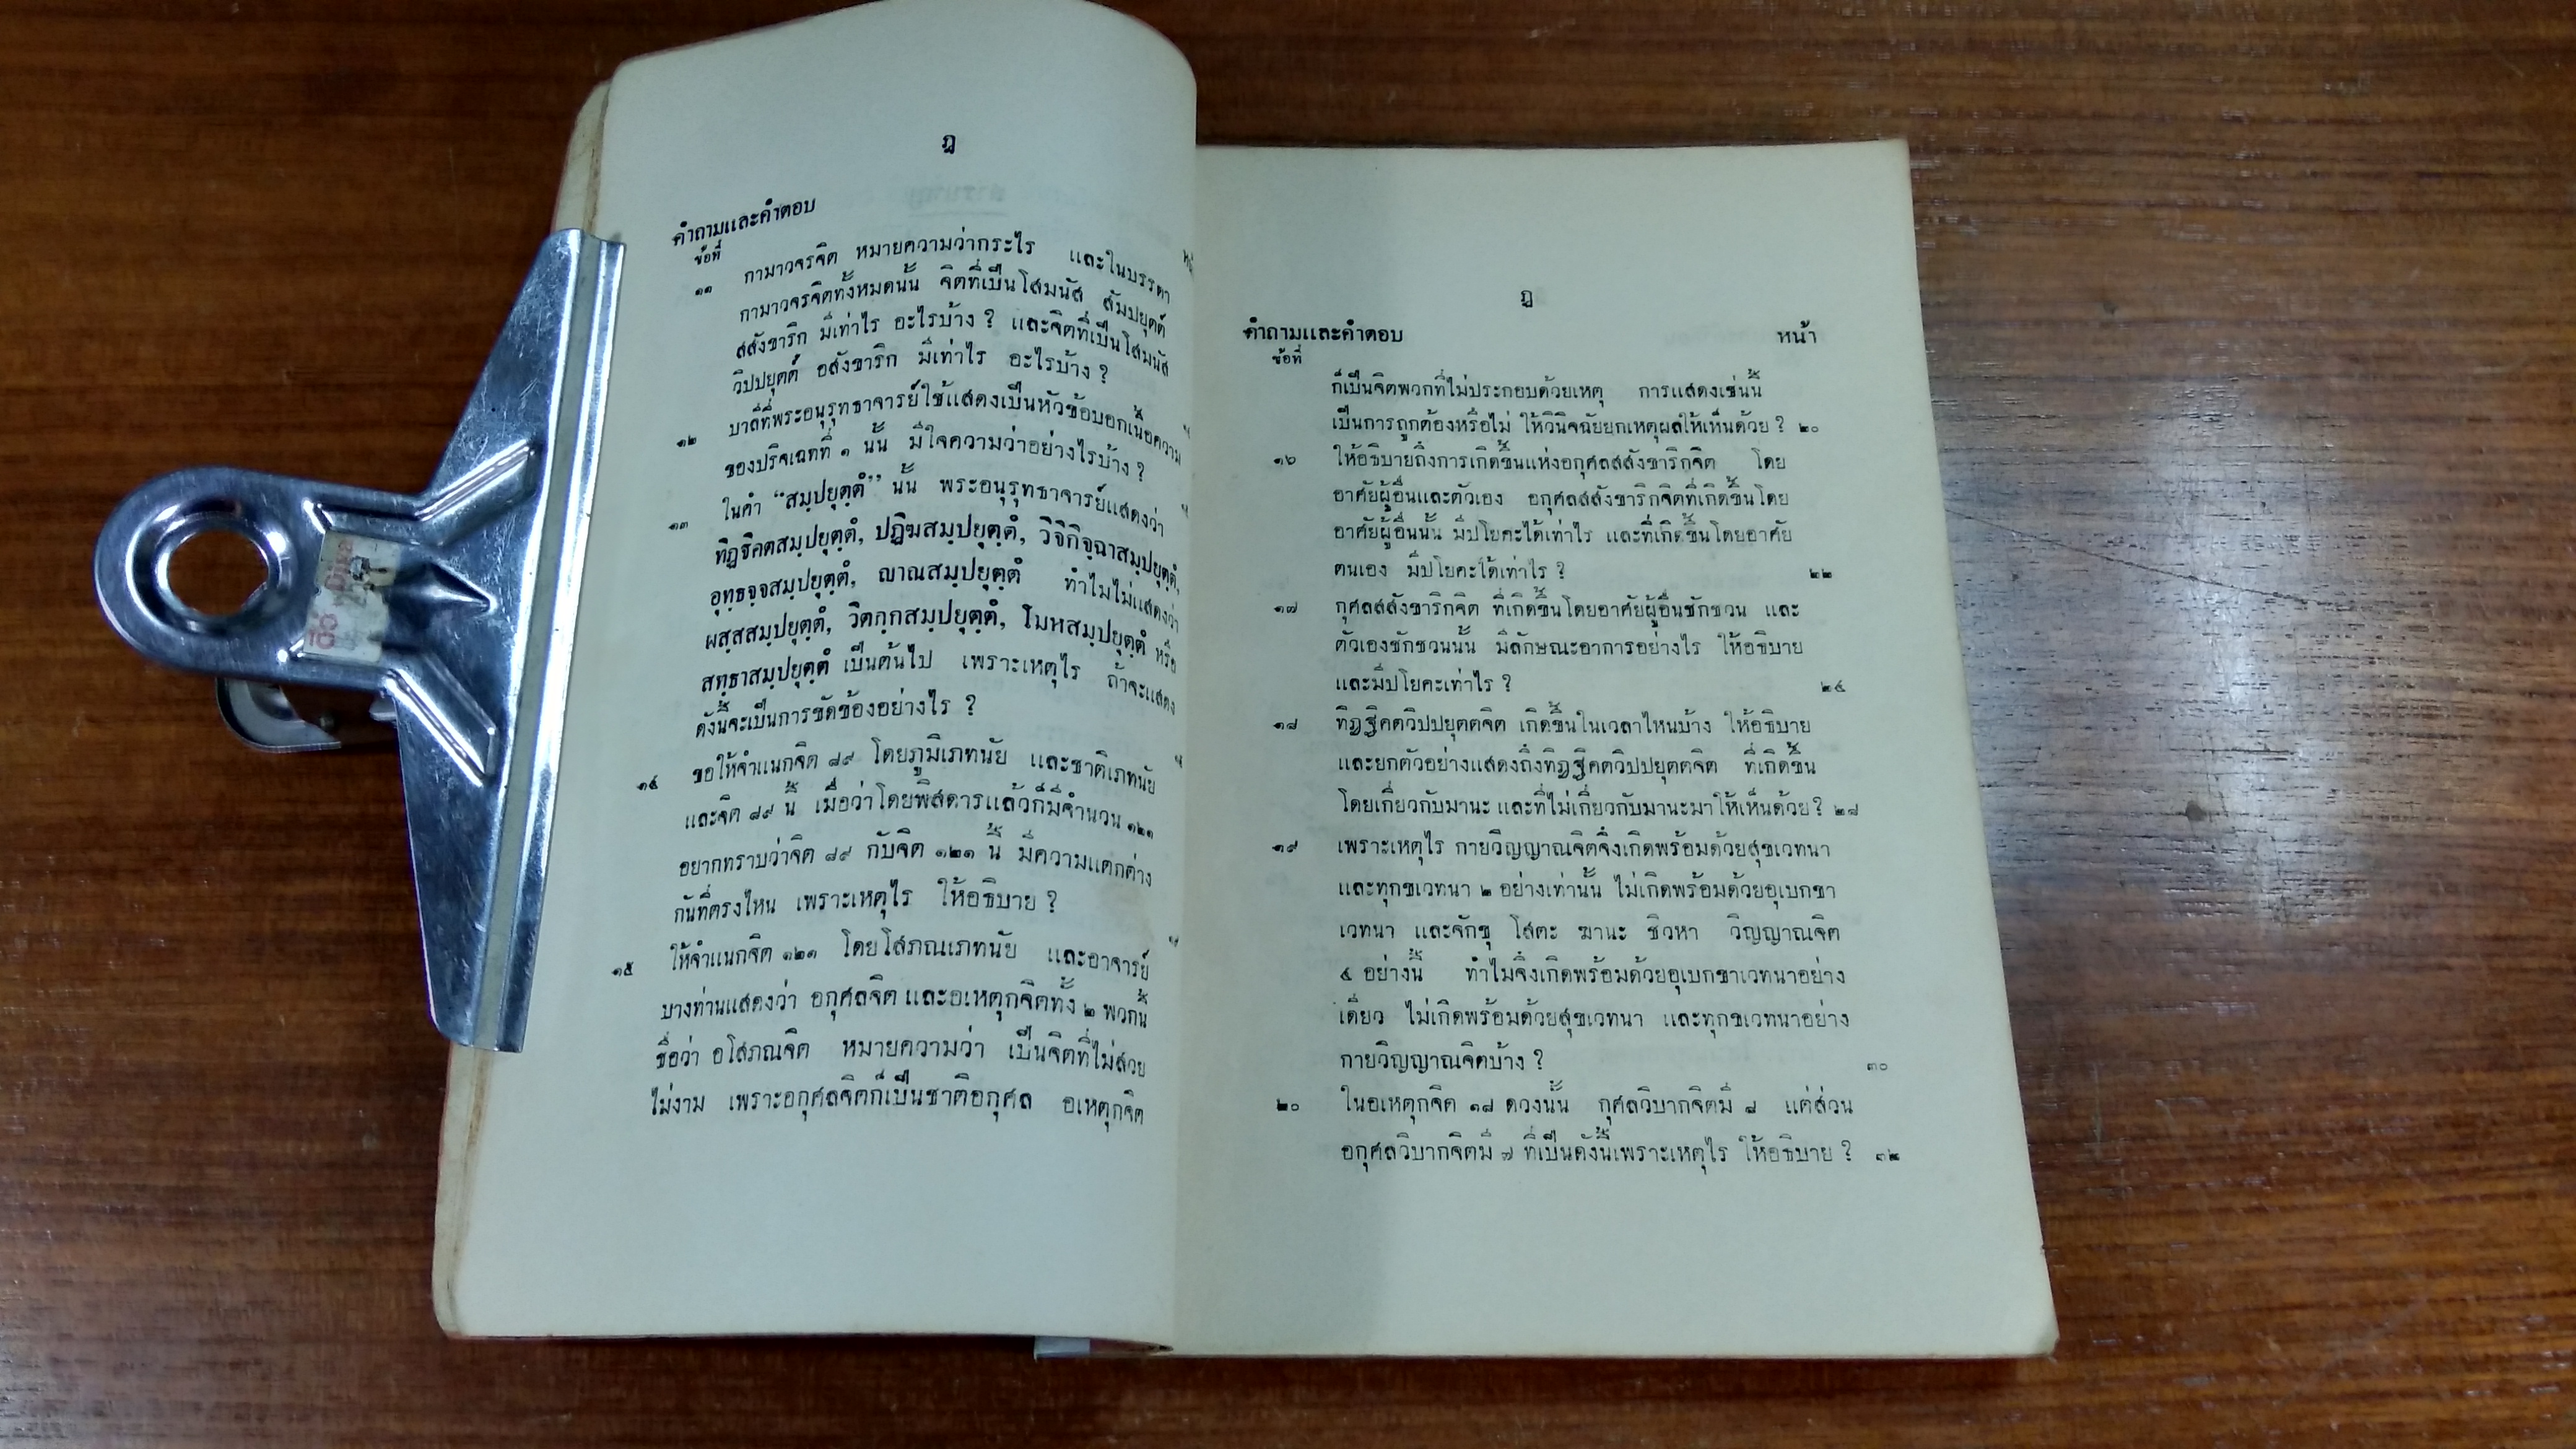 ฎ
คำถามและคำตอบ
ข้อที่
๑๑ กามาวจรจิต หมายความว่ากระไร และในบรรดา
กามาวจรจิตทั้งหมดนั้น จิตที่เป็นโสมนัส สัมปยุตต์
สสังขาริก มีเท่าไร อะไรบ้าง ? และจิตที่เป็นโสมนัส
วิปปยุตต์ อสังขาริก มีเท่าไร อะไรบ้าง ?
๑๒ บาลีที่พระอนุรุทธาจารย์ใช้แสดงเป็นหัวข้อบอกเนื้อความ
ของปริจเฉทที่ ๑ นั้น มีใจความว่าอย่างไรบ้าง ?
๑๓ ในคำ “สมฺปยุตฺตํ” นั้น พระอนุรุทธาจารย์แสดงว่า
ทิฏฺฐิคตสมฺปยุตฺตํ, ปฏิฆสมฺปยุตฺตํ, วิจิกิจฺฉาสมฺปยุตฺตํ,
อุทฺธจฺจสมฺปยุตฺตํ, ญาณสมฺปยุตฺตํ ทำไมไม่แสดงว่า
ผสฺสสมฺปยุตฺตํ, วิตกฺกสมฺปยุตฺตํ, โมหสมฺปยุตฺตํ หรือ
สทฺธาสมฺปยุตฺตํ เป็นต้นไป เพราะเหตุไร ถ้าจะแสดง
ดังนี้จะเป็นการขัดข้องอย่างไร ?
๑๔ ขอให้จำแนกจิต ๘๙ โดยภูมิเภทนัย และชาติเภทนัย
และจิต ๘๙ นี้ เมื่อว่าโดยพิสดารแล้วก็มีจำนวน ๑๒๑
อยากทราบว่าจิต ๘๙ กับจิต ๑๒๑ นี้ มีความแตกต่าง
กันที่ตรงไหน เพราะเหตุไร ให้อธิบาย ?
๑๕ ให้จำแนกจิต ๑๒๑ โดยโสภณเภทนัย และอาจารย์
บางท่านแสดงว่า อกุศลจิต และอเหตุกจิตทั้ง ๒ พวกนี้
ชื่อว่า อโสภณจิต หมายความว่า เป็นจิตที่ไม่สวย
ไม่งาม เพราะอกุศลจิตก็เป็นชาติอกุศล อเหตุกจิต
ฏ
คำถามและคำตอบ หน้า
ข้อที่
ก็เป็นจิตพวกที่ไม่ประกอบด้วยเหตุ การแสดงเช่นนี้
เป็นการถูกต้องหรือไม่ ให้วินิจฉัยยกเหตุผลให้เห็นด้วย ? ๒๐
๑๖ ให้อธิบายถึงการเกิดขึ้นแห่งอกุศลสสังขาริกจิต โดย
อาศัยผู้อื่นและตัวเอง อกุศลสสังขาริกจิตที่เกิดขึ้นโดย
อาศัยผู้อื่นนั้น มีปโยคะได้เท่าไร และที่เกิดขึ้นโดยอาศัย
ตนเอง มีปโยคะได้เท่าไร ? ๒๒
๑๗ กุศลสสังขาริกจิต ที่เกิดขึ้นโดยอาศัยผู้อื่นชักชวน และ
ตัวเองชักชวนนั้น มีลักษณะอาการอย่างไร ให้อธิบาย
และมีปโยคะเท่าไร ? ๒๔
๑๘ ทิฏฐิคตวิปปยุตตจิต เกิดขึ้นในเวลาไหนบ้าง ให้อธิบาย
และยกตัวอย่างแสดงถึงทิฏฐิคตวิปปยุตตจิต ที่เกิดขึ้น
โดยเกี่ยวกับมานะ และที่ไม่เกี่ยวกับมานะมาให้เห็นด้วย ? ๒๘
๑๙ เพราะเหตุไร กายวิญญาณจิตจึงเกิดพร้อมด้วยสุขเวทนา
และทุกขเวทนา ๒ อย่างเท่านั้น ไม่เกิดพร้อมด้วยอุเบกขา
เวทนา และจักขุ โสตะ ฆานะ ชิวหา วิญญาณจิต
๔ อย่างนี้ ทำไมจึงเกิดพร้อมด้วยอุเบกขาเวทนาอย่าง
เดียว ไม่เกิดพร้อมด้วยสุขเวทนา และทุกขเวทนาอย่าง
กายวิญญาณจิตบ้าง ? ๓๐
๒๐ ในอเหตุกจิต ๑๘ ดวงนั้น กุศลวิบากจิตมี ๘ แต่ส่วน
อกุศลวิบากจิตมี ๗ ที่เป็นดังนี้เพราะเหตุไร ให้อธิบาย ? ๓๒